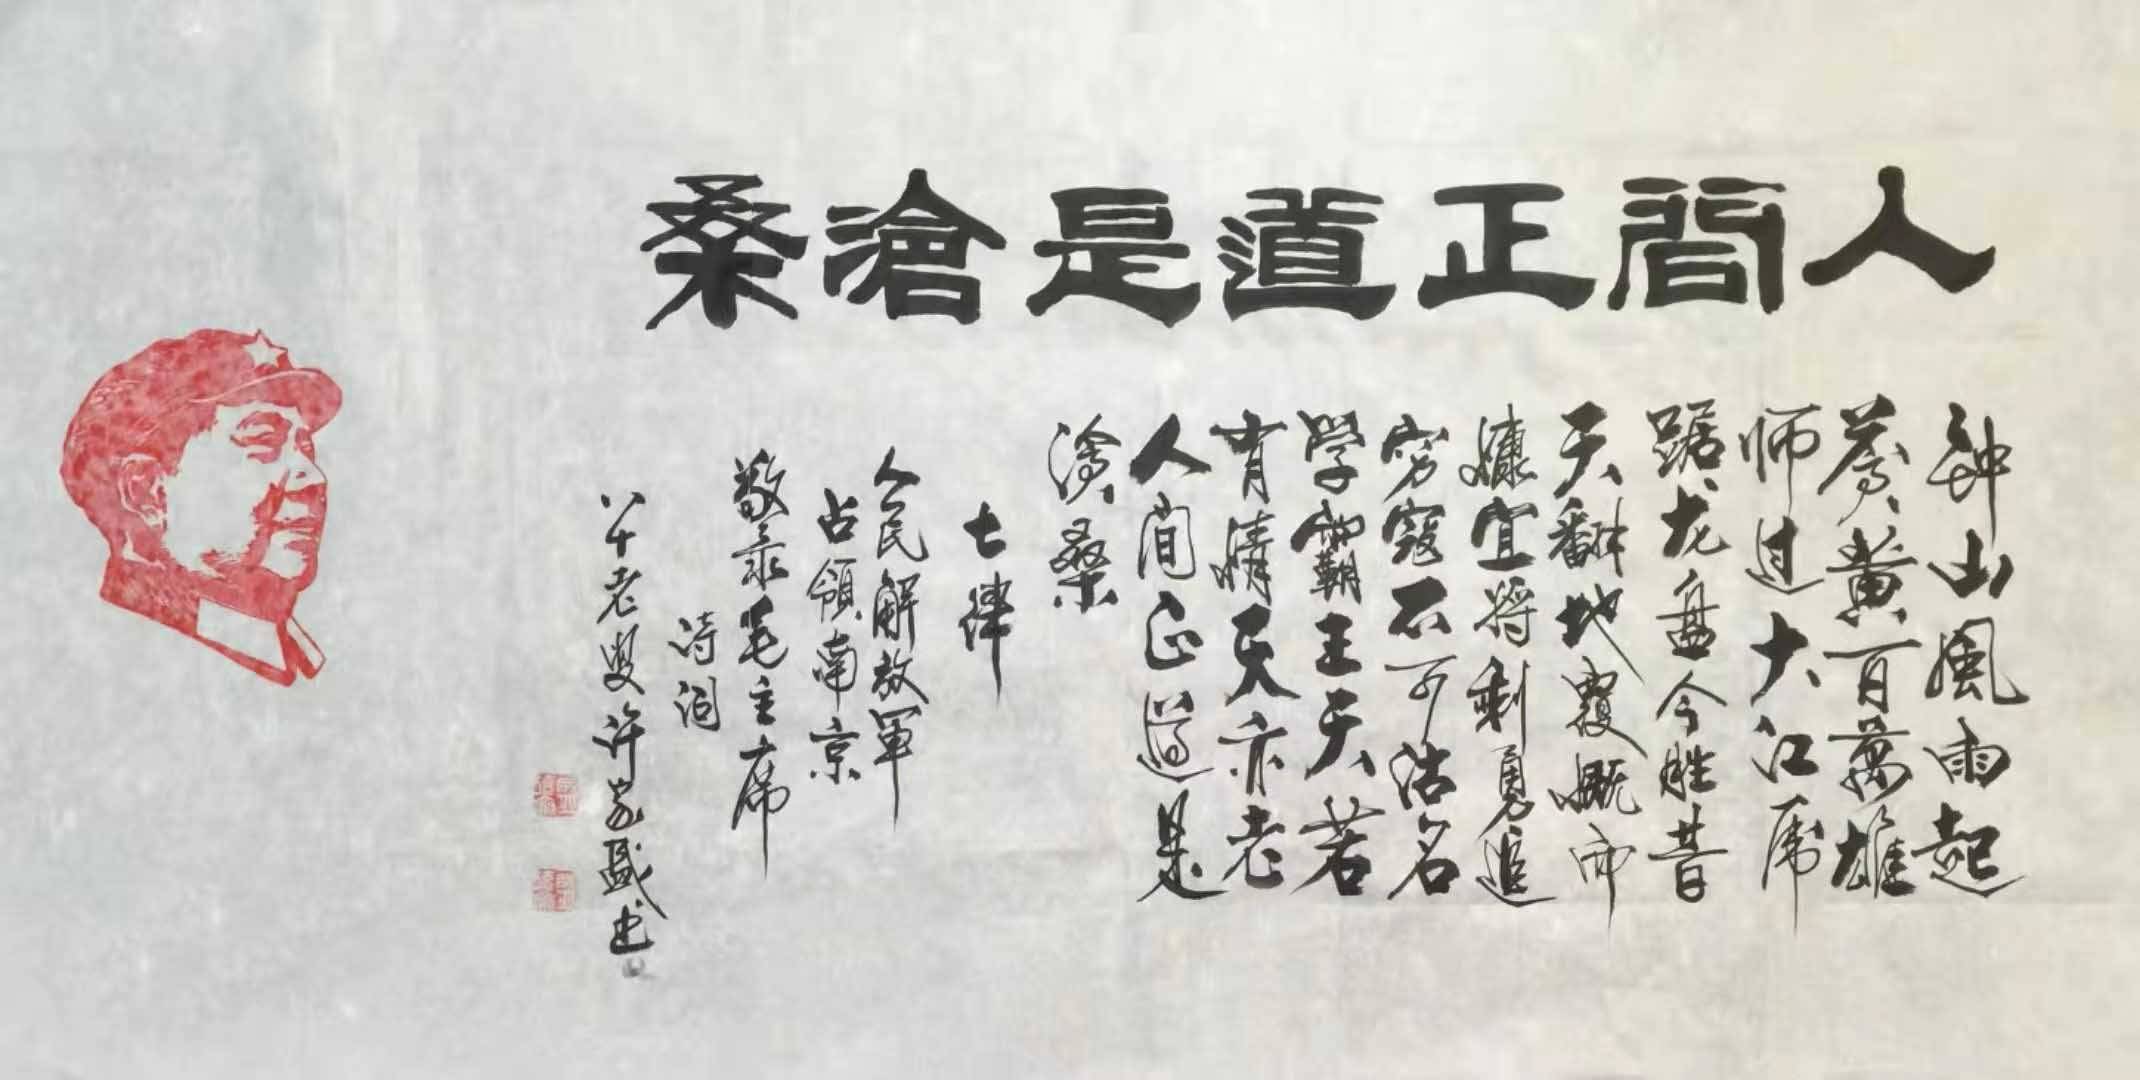 人間正道是滄桑
钟山風雨起
蒼黄百萬雄
师过大江虎
踞龙盘今胜昔
天翻地覆慨而
慷宜将剩勇追
穷寇不可沽名
学霸王天若
有情天亦老
人间正道是
滄桑
七律
人民解放軍
占領南京
敬录毛主席
诗词
八十老叟许家盛书